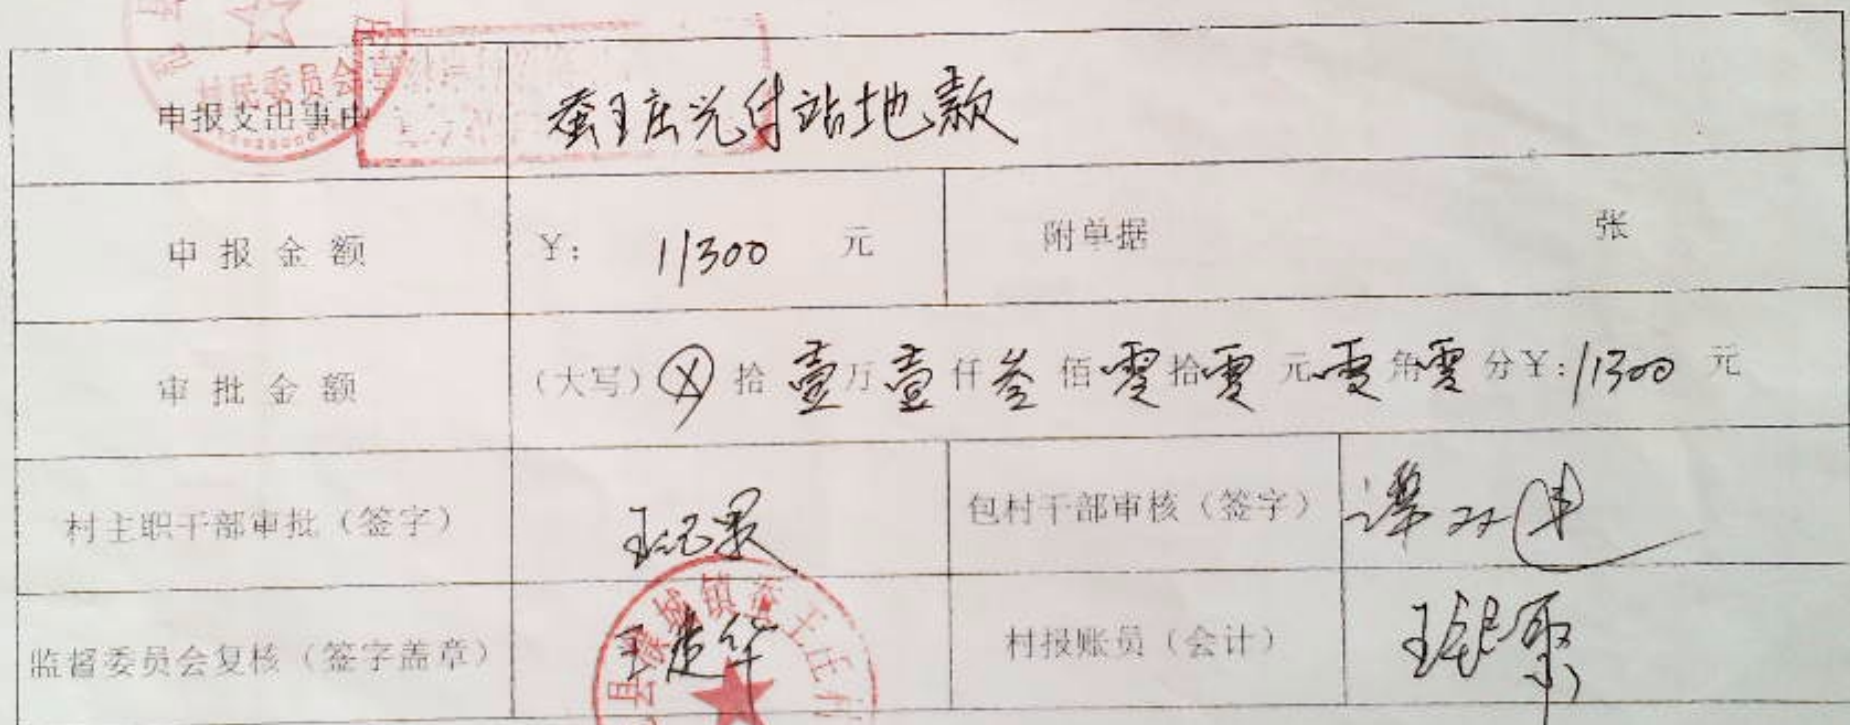 村民委员会
申报支出事由 蚕王庄兑付站地款
申报金额 ¥: 11300 元 附单据 张
审批金额 (大写) ⊗ 拾 壹 万 壹 仟 叁 佰 零 拾 零 元 零 角 零 分 ¥: 11300 元
村主职干部审批(签字) 包村干部审核(签字)
县 城镇 王庄村
监督委员会复核(签字盖章) 王 华 村报账员(会计)